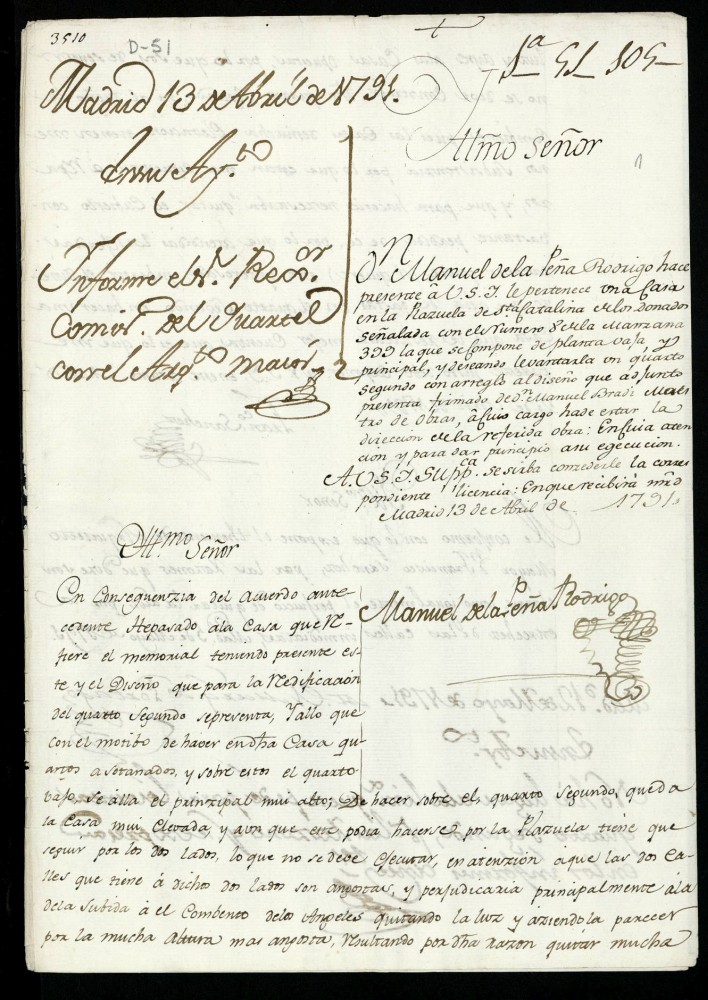 3510
D-51
1ª 51_ 105_
Madrid 13 de Abril de 1791.
Illmo Señor
1
En su Ay.to
Informe el Sr. Regor.
Comisº. del Quartel
con el Arqto maior
Dn Manuel de la Peña Rodrigo hace
presente â V.S.I. le pertenece una Casa
en la Plazuela de Sta Catalina de los Donados
señalada con el Numero 8 de la Manzana
399 la que se compone de planta vaja, y
principal, y deseando levantarla un quarto
segundo con arreglo al diseño que adjunto
presenta firmado de Dn Manuel Bradi Maes
tro de Obras, â cuio cargo ha de estar la
direccion de la referida obra: En cuia aten
cion y para dar principio a su egecucion.
A V.S.I. Suppca se sirba concederle la corres
pondiente licencia: En que recibirá mrd
Madrid 13 de Abril de 1791.
Manuel de la Peña Rodrigo
Illmo Señor
En Conseguenzia del Acuerdo ante
cedente Hepasado ala Casa que Re-
fiere el memorial teniendo presente es-
te, y el Diseño que para la Redificación
del quarto Segundo sepresenta, Yallo que
con el motibo de haver en dha Casa qu
artos asotanados, y sobre estos el quarto
bajo, se alla el principal mui alto; De hacer sobre el, quarto segundo, queda
la Casa mui Elevada, y aun que este podia hacerse por la Plazuela tiene que
seguir por los dos lados, lo que no se deve Ejecutar, en atenzión a que las dos Ca-
lles que tiene á dichos dos lados son angostas, y perjudicaria principalmente á la
dela Subida á el Combento delos Angeles quitando la luz y aziendola parecer
por la mucha Altura mas angosta, Resultando por dha razon quitar mucha